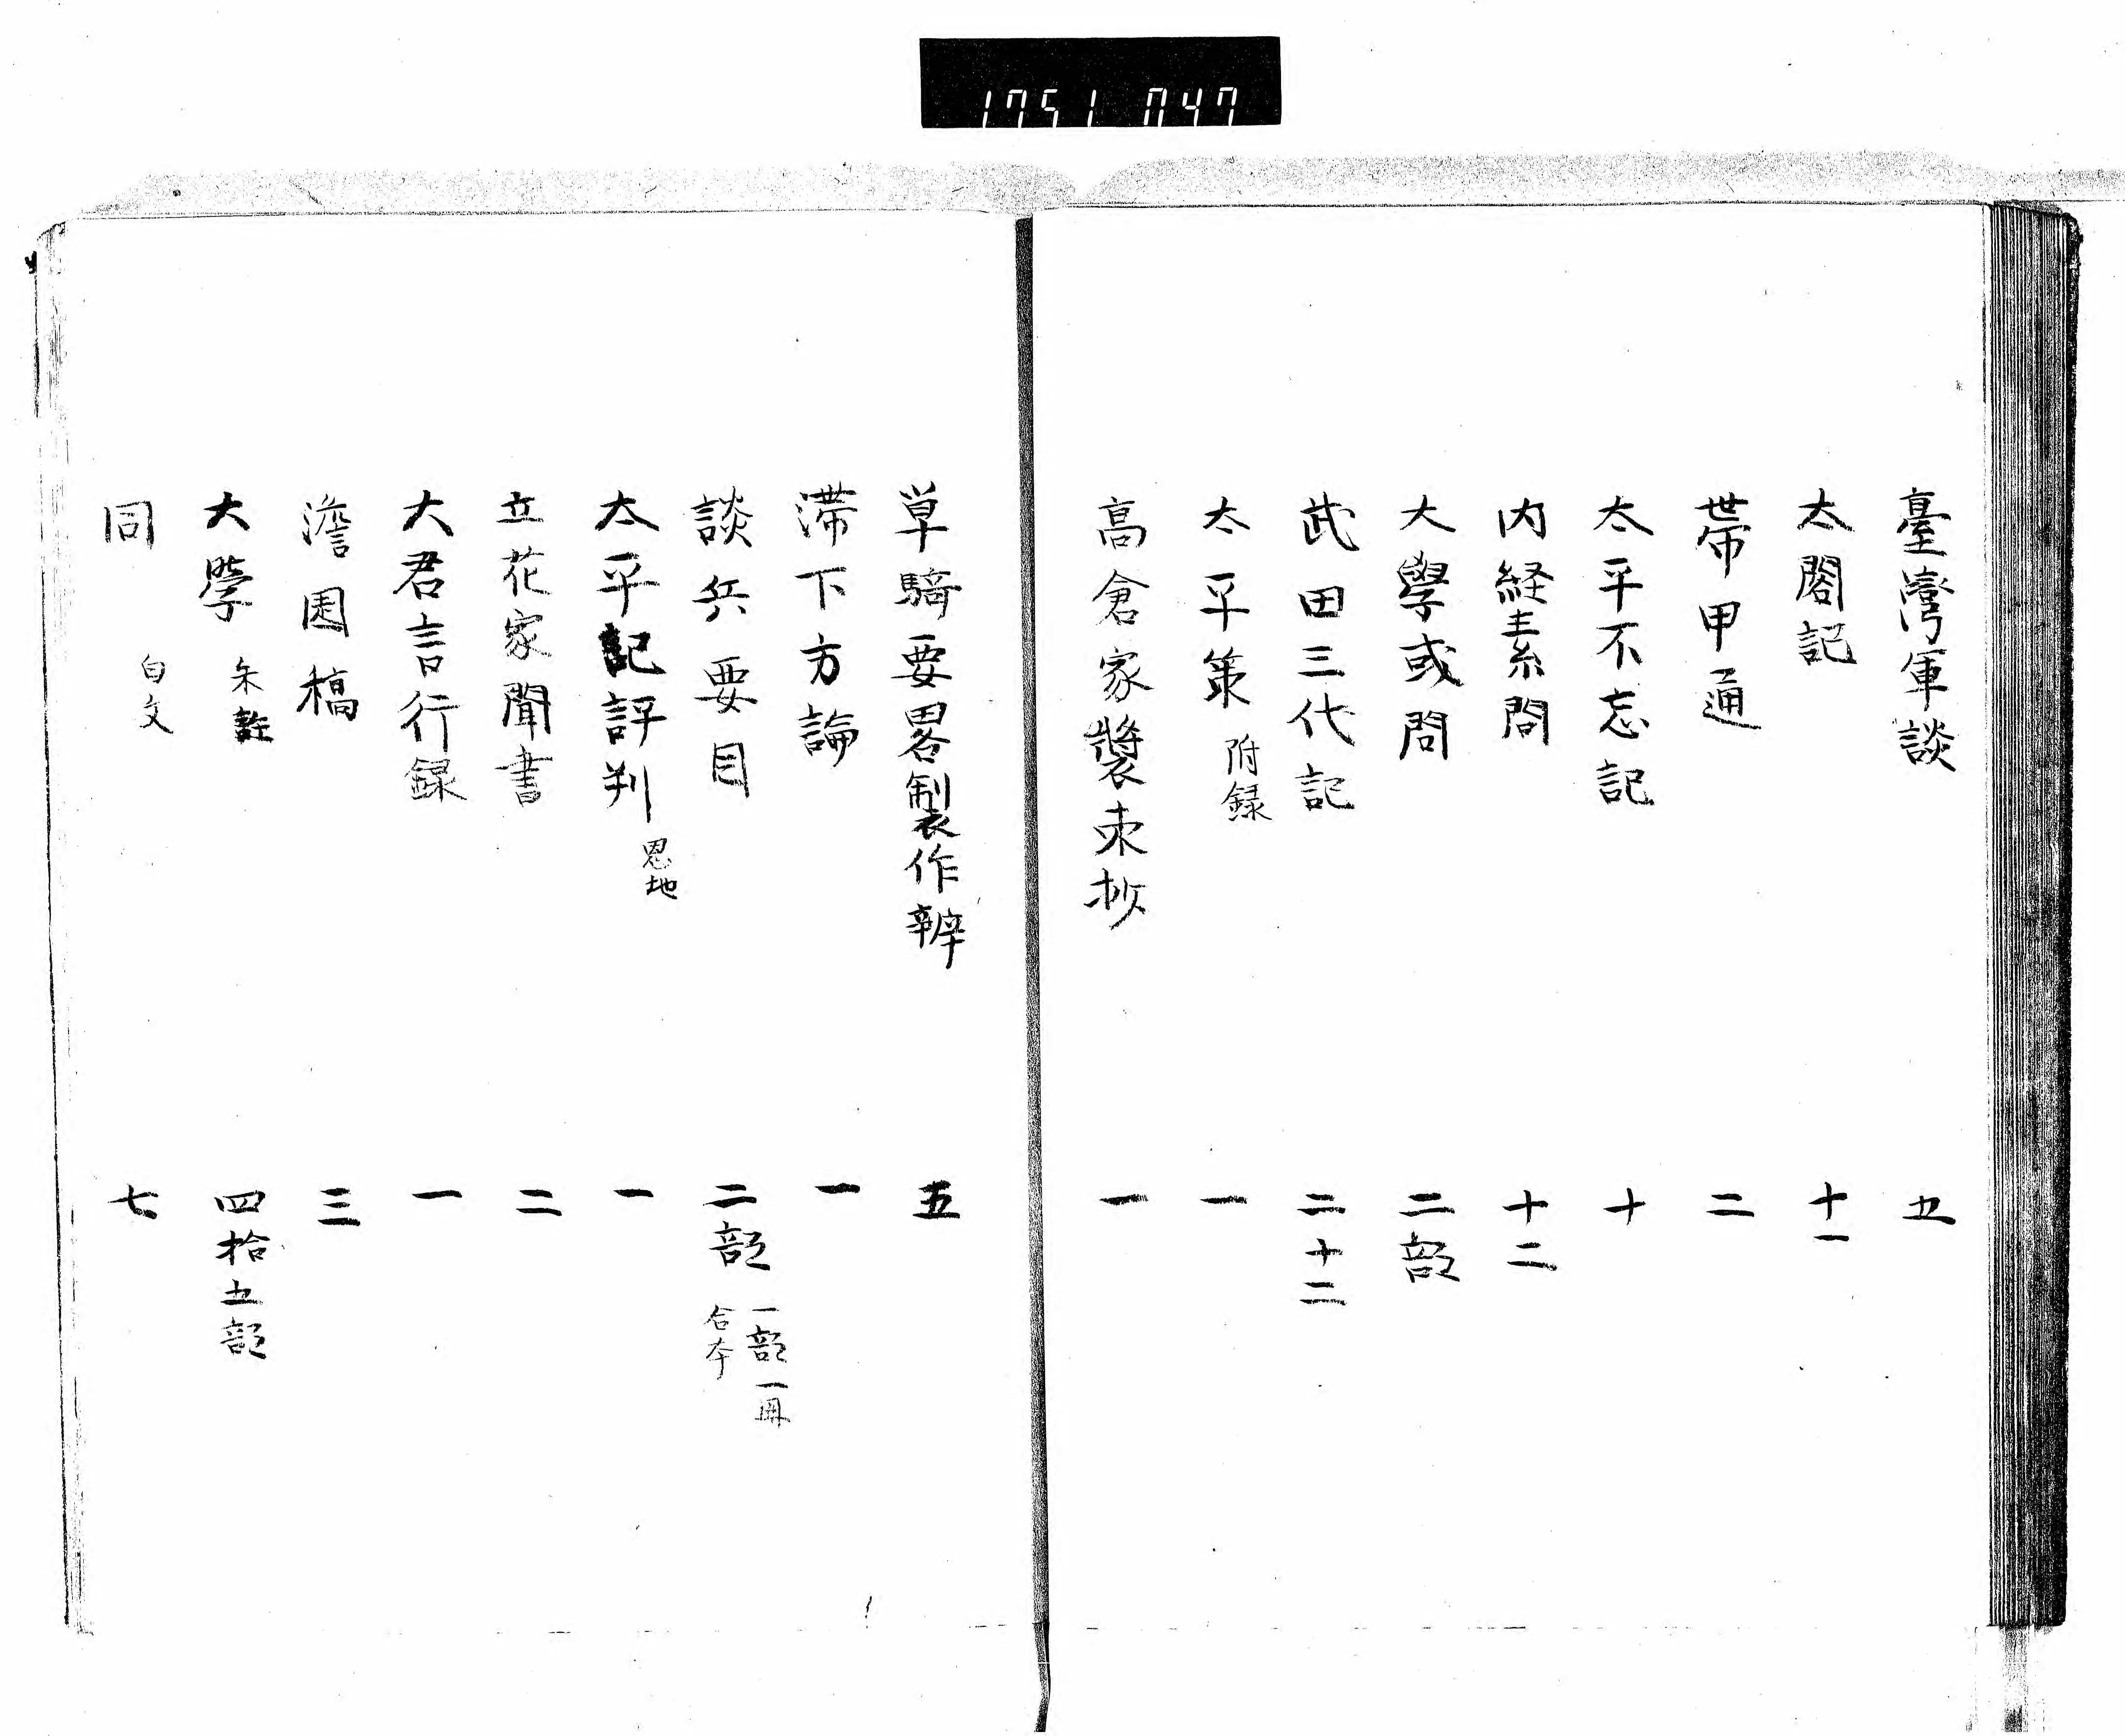 1751 047
臺灣軍談 五
太閤記 十一
帯甲通 二
太平不忘記 十
内経素問 十二
大學或問 二部
武田三代記 二十二
太平策 附録 一
髙倉家裝束抄 一
単騎要畧製作辨 五
滞下方論 一
談兵要目 二部 一部一冊 合本
太平記評判 恩地 一
立花家聞書 二
大君言行録 一
澹園稿 三
大学 朱註 四拾五部
同 白文 七